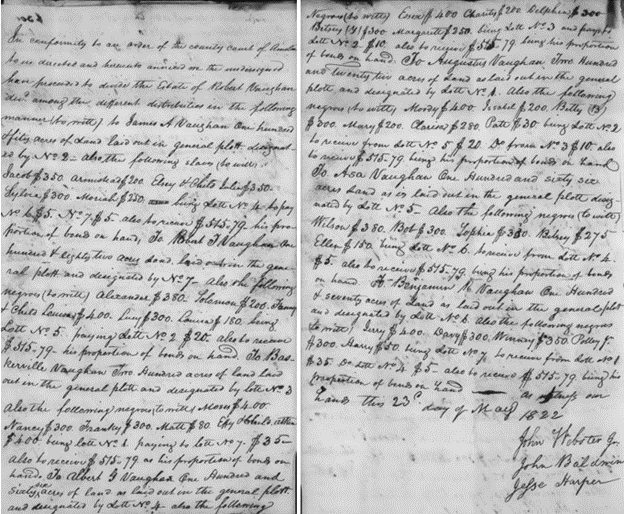 In conformity to an order of the county court of Amelia
to us directed and hereunto annexed we the undersigned
have proceeded to divide the Estate of Robert Vaughan
decd. among the different distributees in the following
manner (to wit) to James A Vaughan One hundred
& fifty acres of Land laid out in general plott design-
ed by No 2 - also the following slaves (to wit)
Jacob $350. Armstead $200. & Child $350.
Sylvia $300. Moriah $250. being Lott No 4 to pay
No 6 $5. No 7 $5 - also to receive $515-79 his pro-
portion of bonds on hand, To Vaughan One
hundred & eighty two acres land laid out in the gene-
ral plott and designated by No 7 - Also the following
negroes (to wit) Alexander $380. Solomon $200. Fanny
& Child $400. Lucy $300. $180. being
Lott No 5 - paying Lott No 2 $20. also to receive
$515-79- his proportion of bonds on hand To Bas-
kerville Vaughan Two Hundred acres of land laid
out in the general plott and designated by lott No 3
also the following negroes, to witt Moses $400.
Nancy $300. Franky $300. Matt $80. & Child
$400 being lott No 1 paying to lott No 7. $35-
also to receive $515-79 as his proportion of bonds on
hand. To Albert J Vaughan One Hundred and
sixty acres of land as laid out in the general plott
and designated by Lott No 4 also the following
Negroes (to witt) $400 Charity $200 Delphia $300
Betsey (Y) $300 Margarett $250. being Lott No 3 and pays to
Lott No 2 $10. also to receive $515-79 being his proportion
of bonds on hand. To Augustus Vaughan Two Hundred
and twenty two acres of Land as laid out in the general
plott, and designated by Lott No 1. Also the following
negroes (to witt) Mordy $400. Isabel $200. Betty
$300. Mary $200. Clarisa $280 Patt $30. being Lott No 2
to receive from Lott No 5 $20. Do from No 3 $10. also
to receive $515-79 being his proportion of bonds on hand
To Asa Vaughan One Hundred and sixty six
acres Land as is laid out in the general plott desig-
nated by Lott No 5 - Also the following negroes (to witt)
Wilson $380. Bob $300. Sophia $350. Betsey $275
Ellen $150. being Lott No 6. to receive from Lott No 4
$5. also to receive $515-79 being his proportion of bonds
on hand To Benjamin R Vaughan One Hundred
& seventy acres of Land as laid out in the general plott
and designated by Lott No 6. Also the following negroes
to witt, Jerry $400. Davy $300. Winney $350 Polley J.
$300 Harry $50 being Lott No 7 to receive from Lott No 1
$35. Do Lott No 4 $5 - also to receive $515-79 being his
proportion of bonds on hand as witness our
hands this 23d day of May 1822
John Webster Jr
John Baldwin
Jesse Harper